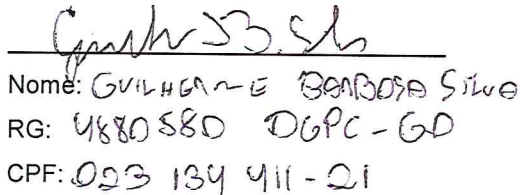 Nome: GUILHERME BARBOSA SILVA
RG: 4880580 DGPC-GO
CPF: 023 134 411-21